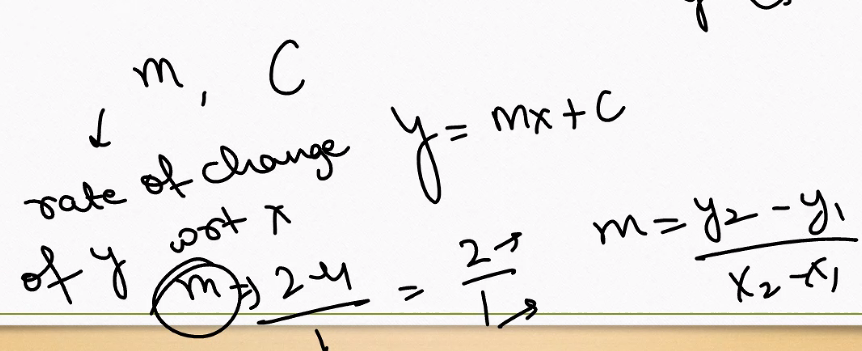 m, C
↓
rate of change
of y wrt x
y = mx + C
m ⇒ = 2/1
m = y₂ - y₁ / x₂ - x₁